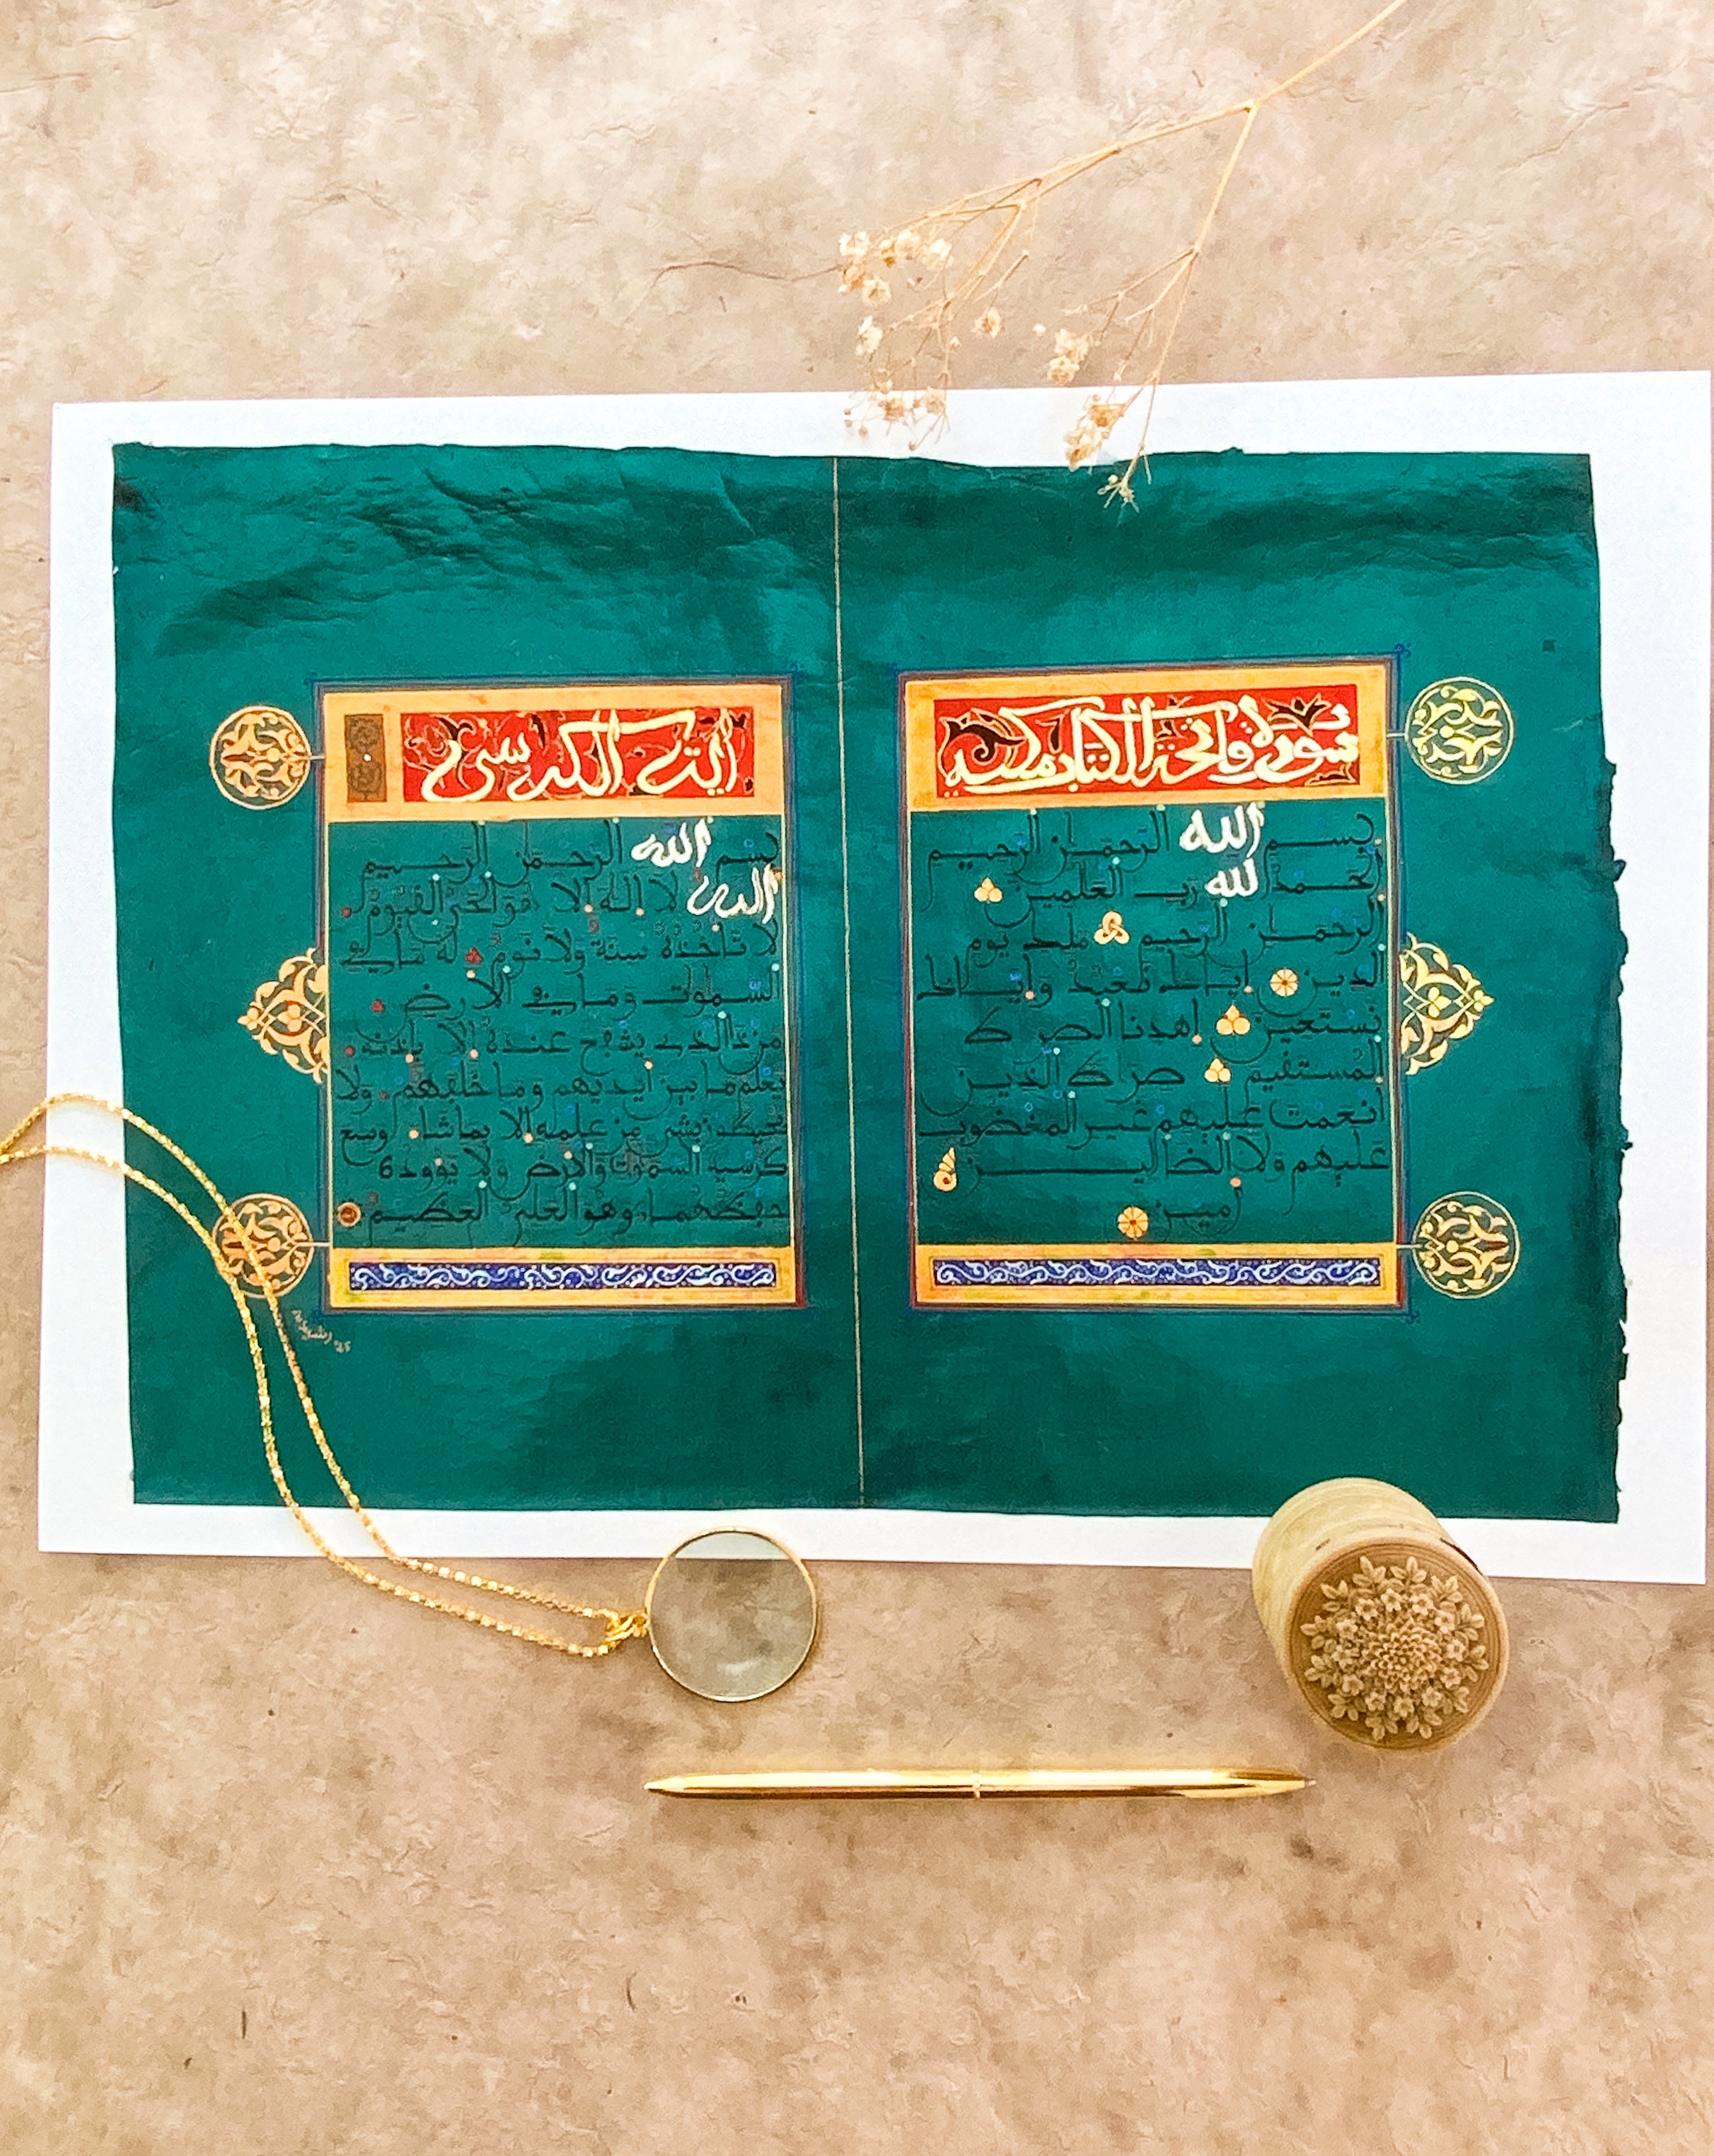 سورة فاتحة الكتاب مكية
بسم الله الرحمان الرحيم
الحمد لله رب العلمين
الرحمان الرحيم ملك يوم
الدين إياك نعبد وإياك
نستعين اهدنا الصرط
المستقيم صراط الذين
أنعمت عليهم غير المغضوب
عليهم ولا الضالين
ءمين
ايت الكرسي
بسم الله الرحمن الرحيم
الله لا إله إلا هو الحي القيوم
لا تأخذه سنة ولا نوم له ما في
السموت وما في الأرض
من ذا الذي يشفع عنده إلا بإذنه
يعلم ما بين أيديهم وما خلفهم ولا
بشيء من علمه إلا بما شاء وسع
كرسيه السموت والأرض ولا يووده
حفظهما وهو العلي العظيم